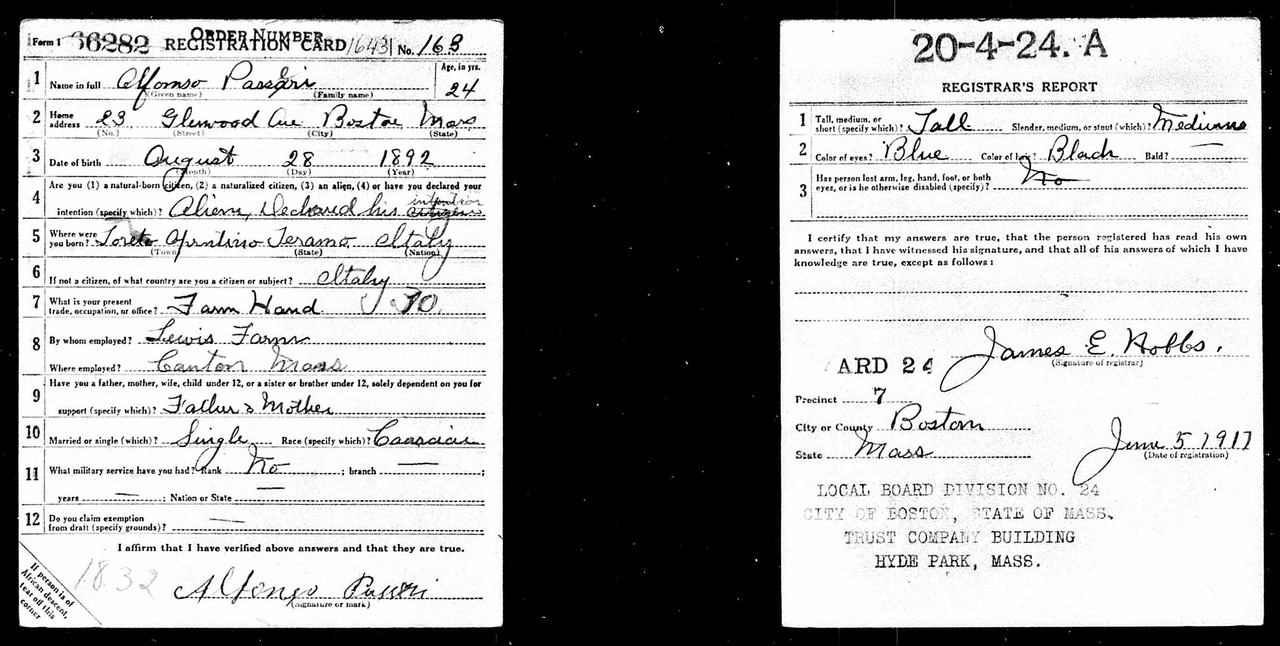 ORDER NUMBER
Form 1 66282 REGISTRATION CARD 1643 No. 163
1 Name in full Alfonso Passeri Age, in yrs.
(Given name) (Family name) 24
2 Home address 23 Glenwood Ave Boston Mass
(No.) (Street) (City) (State)
3 Date of birth August 28 1892
(Month) (Day) (Year)
4 Are you (1) a natural-born citizen, (2) a naturalized citizen, (3) an alien, (4) or have you declared your
intention (specify which)? Alien, Declared his intention
5 Where were you born? Loreto Teramo Italy
(Town) (State) (Nation)
6 If not a citizen, of what country are you a citizen or subject? Italy
7 What is your present trade, occupation, or office? Farm Hand 70
8 By whom employed? Lewis Farm
Where employed? Canton Mass
9 Have you a father, mother, wife, child under 12, or a sister or brother under 12, solely dependent on you for
support (specify which)? Father & Mother
10 Married or single (which)? Single Race (specify which)? Caucasian
11 What military service have you had? Rank No ; branch — ;
years — ; Nation or State —
12 Do you claim exemption from draft (specify grounds)? —
I affirm that I have verified above answers and that they are true.
1832
Alfonso Passeri
(Signature or mark)
If person is of
African descent,
tear off this
corner
20-4-24. A
REGISTRAR'S REPORT
1 Tall, medium, or short (specify which)? Tall Slender, medium, or stout (which)? Medium
2 Color of eyes? Blue Color of hair? Black Bald? —
3 Has person lost arm, leg, hand, foot, or both eyes, or is he otherwise disabled (specify)? No
I certify that my answers are true, that the person registered has read his own
answers, that I have witnessed his signature, and that all of his answers of which I have
knowledge are true, except as follows:
James E. Hobbs.
(Signature of registrar)
ARD 24
Precinct 7
City or County Boston
State Mass June 5 1917
(Date of registration)
LOCAL BOARD DIVISION NO. 24
CITY OF BOSTON, STATE OF MASS.
TRUST COMPANY BUILDING
HYDE PARK, MASS.